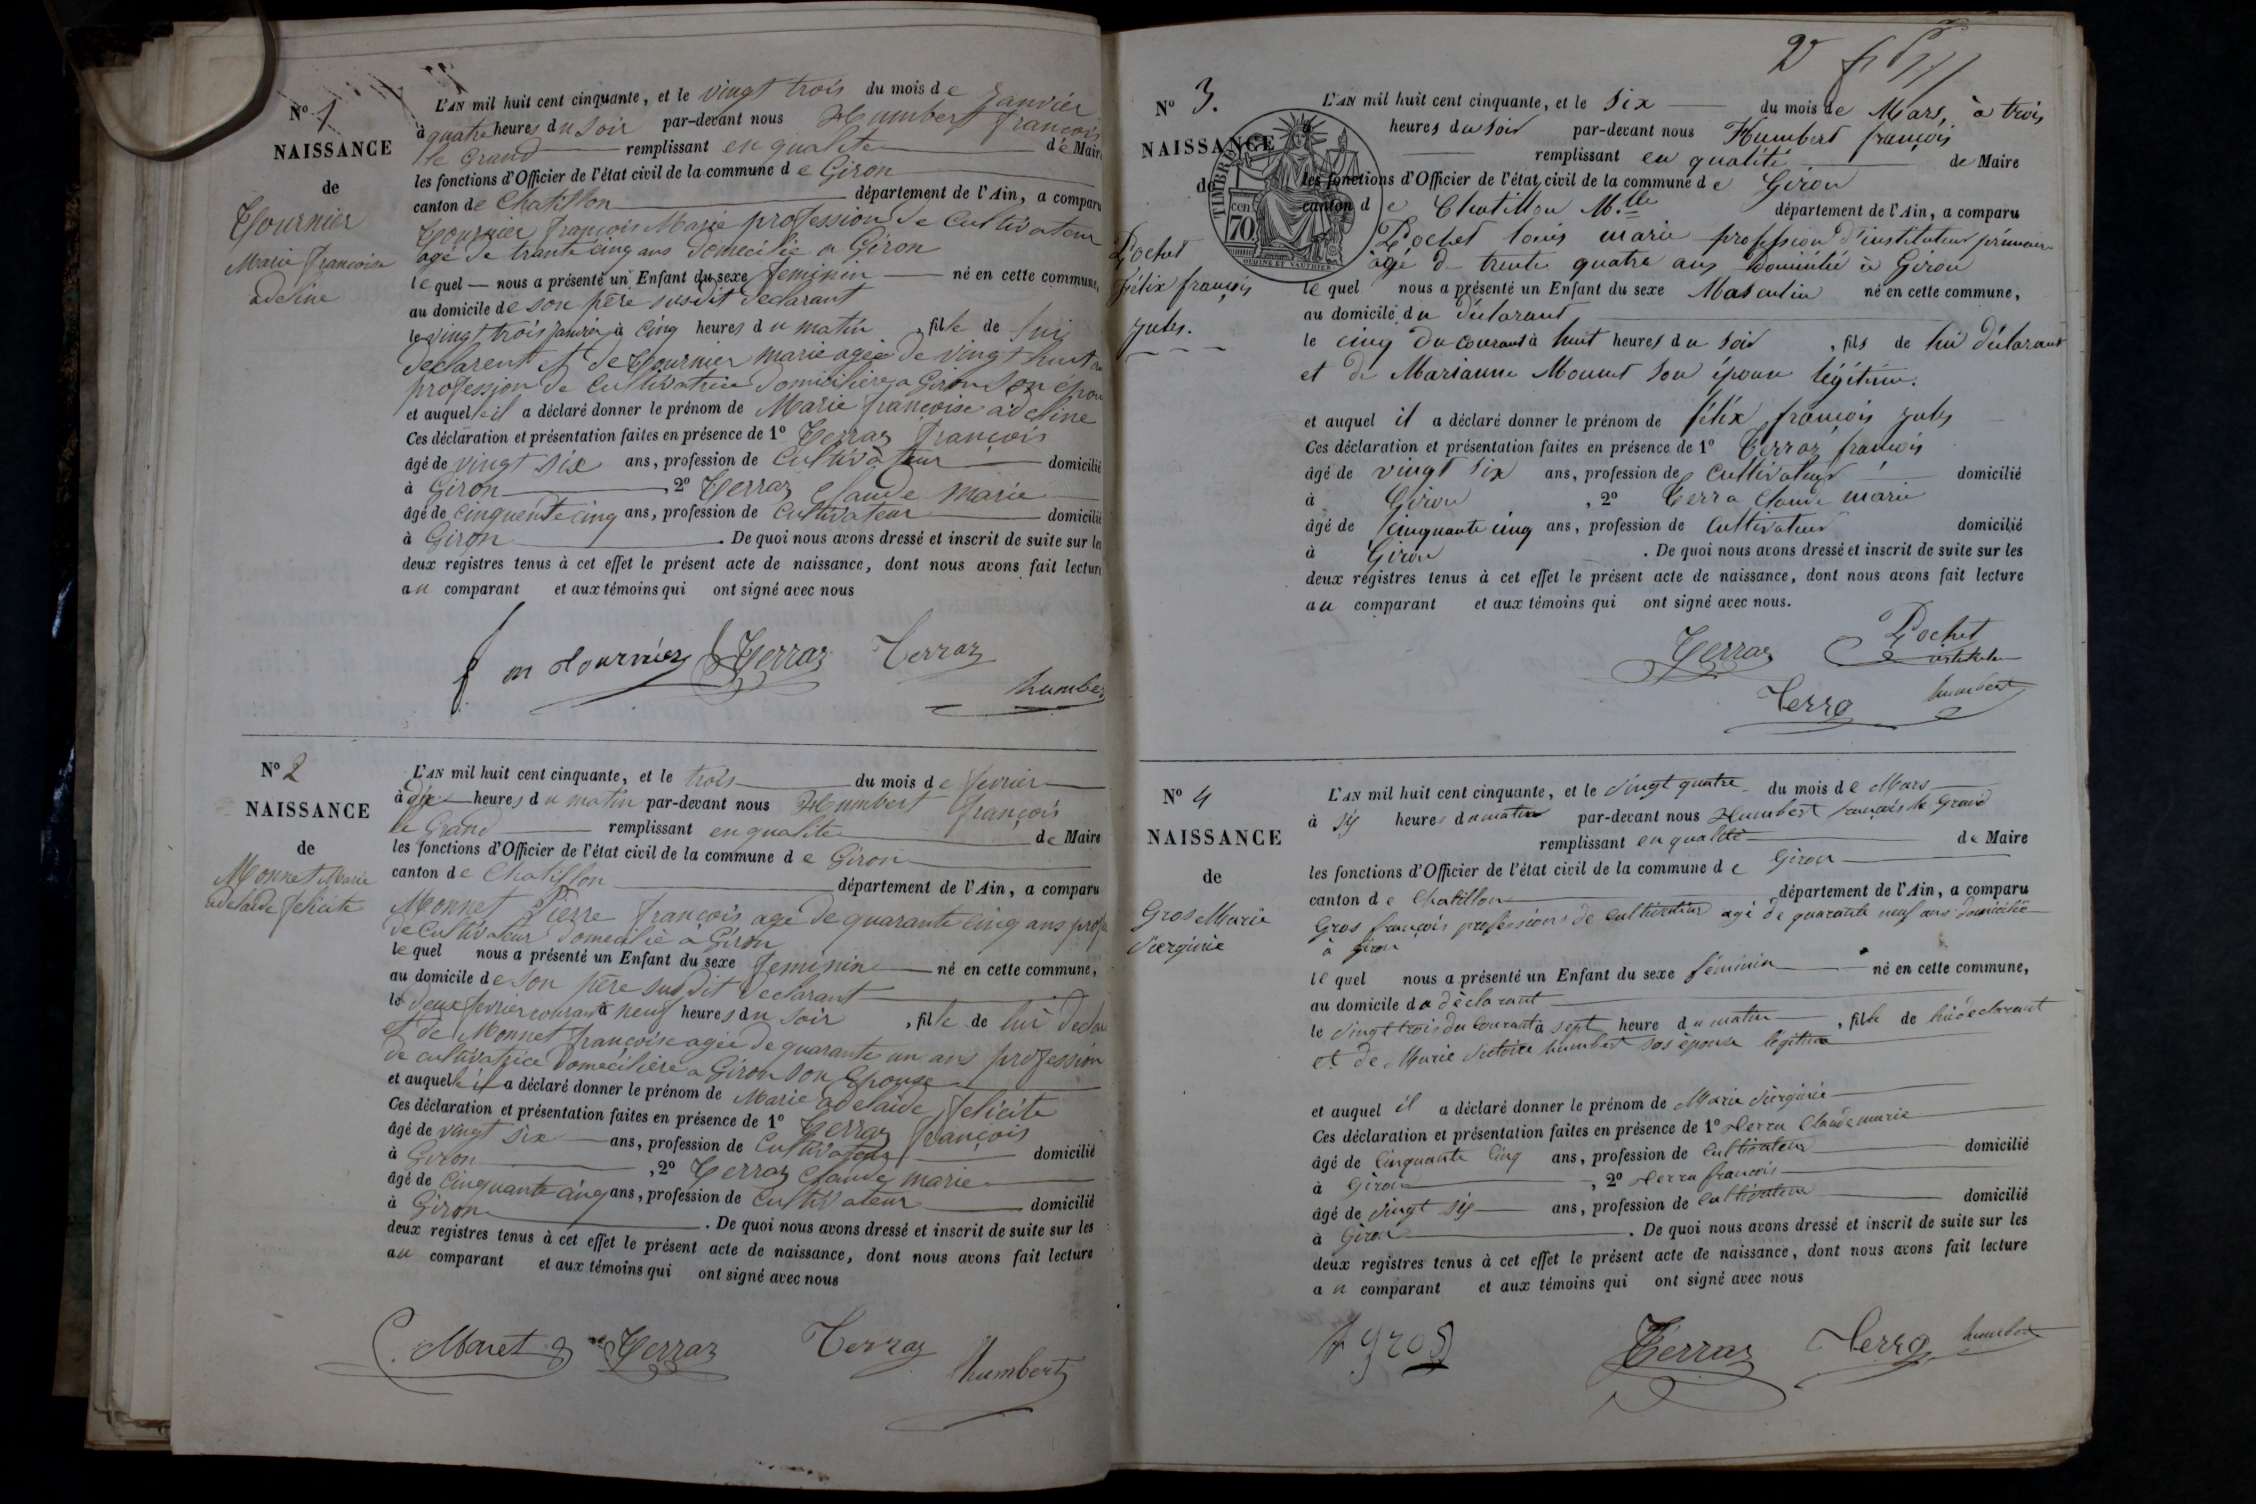 N° 1
NAISSANCE
de
Tournier
Marie françoise
adeline
L'AN mil huit cent cinquante, et le vingt trois du mois de Janvier
à quatre heures du soir par-devant nous Humbert françois
le Grand remplissant en qualité de Maire
les fonctions d'Officier de l'état civil de la commune de Giron
canton de Chatillon département de l'Ain, a comparu
Tournier françois Marie profession de Cultivateur
agé de trante cinq ans domecilié a Giron
le quel nous a présenté un Enfant du sexe feminin né en cette commune,
au domicile de son père susdit declarant
le vingt trois janvier à cinq heures du matin, fille de lui
declarent et de Tournier marie agée de vingt huit
profession de Cultivatrice domicilière a Giron son
et auquel il a déclaré donner le prénom de Marie françoise adeline
Ces déclaration et présentation faites en présence de 1° Terraz françois
âgé de vingt six ans, profession de Cultivateur domicilié
à Giron, 2° Terraz Claude marie
âgé de Cinquente cinq ans, profession de Cultivateur domicilié
à Giron. De quoi nous avons dressé et inscrit de suite sur les
deux registres tenus à cet effet le présent acte de naissance, dont nous avons fait lecture
au comparant et aux témoins qui ont signé avec nous
f m tournier Terraz Terraz
humbert
N° 2
NAISSANCE
de
Monnet Marie
adelaide felicite
L'AN mil huit cent cinquante, et le trois du mois de fevrier
à dix heures du matin par-devant nous Humbert françois
le Grand remplissant en qualite de Maire
les fonctions d'Officier de l'état civil de la commune de Giron
canton de Chatillon département de l'Ain, a comparu
Monnet Pierre françois age de quarante cinq ans
de Cultivateur domecilié à Giron
le quel nous a présenté un Enfant du sexe feminin né en cette commune,
au domicile de son père susdit declarant
le deux fevrier courant à neuf heures du soir, fille de lui
et de Monnet françoise agée de quarante un ans profession
de cultivatrice domecilière a Giron son Epouse
et auquel il a déclaré donner le prénom de Marie adelaide felicite
Ces déclaration et présentation faites en présence de 1° Terraz françois
âgé de vingt six ans, profession de Cultivateur domicilié
à Giron, 2° Terraz Claude marie
âgé de Cinquante cinq ans, profession de Cultivateur domicilié
à Giron. De quoi nous avons dressé et inscrit de suite sur les
deux registres tenus à cet effet le présent acte de naissance, dont nous avons fait lecture
au comparant et aux témoins qui ont signé avec nous
Terraz Terraz
humbert
2
N° 3.
NAISSANCE
de
TIMBRE
70
Pochet
félix françois
Jules.
L'AN mil huit cent cinquante, et le six du mois de Mars, à trois
heures du soir par-devant nous Humbert françois
remplissant en qualité de Maire
les fonctions d'Officier de l'état civil de la commune de Giron
canton de Chatillon département de l'Ain, a comparu
Pochet louis marie profession d'instituteur primaire
âgé de trente quatre ans domicilié à Giron
le quel nous a présenté un Enfant du sexe Masculin né en cette commune,
au domicile du déclarant
le cinq du courant à huit heures du soir, fils de lui déclarant
et de Marianne Monnet son épouse légitime.
et auquel il a déclaré donner le prénom de félix françois Jules
Ces déclaration et présentation faites en présence de 1° Terraz françois
âgé de vingt six ans, profession de Cultivateur domicilié
à Giron, 2° Terra Claude marie
âgé de cinquante cinq ans, profession de Cultivateur domicilié
à Giron. De quoi nous avons dressé et inscrit de suite sur les
deux registres tenus à cet effet le présent acte de naissance, dont nous avons fait lecture
au comparant et aux témoins qui ont signé avec nous.
Terraz Pochet
Terra humbert
N° 4
NAISSANCE
de
Gros Marie
Vierginie
L'AN mil huit cent cinquante, et le vingt quatre du mois de Mars
à six heures du matin par-devant nous Humbert françois le Grand
remplissant en qualité de Maire
les fonctions d'Officier de l'état civil de la commune de Giron
canton de Chatillon département de l'Ain, a comparu
Gros françois profession de Cultivateur agé de quarante neuf ans domicilié
à Giron
le quel nous a présenté un Enfant du sexe féminin né en cette commune,
au domicile du déclarant
le vingt trois du courant à sept heure du matin, fille de lui déclarant
et de Marie Victoire humbert son épouse légitime
et auquel il a déclaré donner le prénom de Marie Vierginie
Ces déclaration et présentation faites en présence de 1° Terra Claude marie
âgé de Cinquante Cinq ans, profession de Cultivateur domicilié
à Giron, 2° Terra françois
âgé de vingt six ans, profession de Cultivateur domicilié
à Giron. De quoi nous avons dressé et inscrit de suite sur les
deux registres tenus à cet effet le présent acte de naissance, dont nous avons fait lecture
au comparant et aux témoins qui ont signé avec nous
f gros Terraz Terra humbert